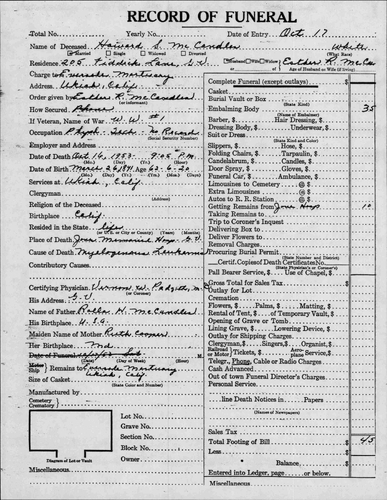 RECORD OF FUNERAL
Total No. Yearly No. Date of Entry Oct. 17
Name of Deceased Howard S. McCandless White
Married Single Widowed Divorced (What Race)
Residence 205 Fiddick Lane, G.V. Husband Wife Widow Esther R. McCa
Age of Husband or Wife (if living)
Charge to Eversole Mortuary
Address Ukiah, Calif.
Order given by Esther R. McCandless
(or informant)
How Secured Phone
If Veteran, Name of War W.W. #1
Occupation No Record
(Social Security Number)
Employer and Address
Date of Death Oct 16, 1953 9:05 P.M.
Date of Birth March 26, 62-6-20
Services at Ukiah, Calif
Clergyman
(Address)
Religion of the Deceased
Birthplace Calif.
Resided in the State life
(or U.S., or CITY or COUNTY) (Years) (Months)
Place of Death Jones Memorial Hosp. G.V.
Cause of Death Myelogenous Leukemia
Contributory Causes
Certifying Physician Vernon W. Padgett, M.D.
(or Coroner)
His Address G.V.
Name of Father McCandless
His Birthplace U.S.
Maiden Name of Mother Ruth Cooper
Her Birthplace Md
Date of Funeral M.
(Date) (Day of Week) (Hour)
Motor
Ship Remains to Eversole Mortuary
Ukiah, Calif.
Size of Casket
(State Color and Number)
Manufactured by
Cemetery
Crematory
Lot No.
Grave No.
Section No.
Block No.
Owner
Diagram of Lot or Vault
Miscellaneous
Complete Funeral (except outlays) $
Casket
Burial Vault or Box
(State Kind)
Embalming Body 35
(Name of Embalmer)
Barber, $ Hair Dressing, $
Dressing Body, $ Underwear, $
Suit or Dress
(State Kind and Color)
Slippers, $ Hose, $
Folding Chairs, $ Tarpaulin, $
Candelabrum, $ Candles, $
Door Spray, $ Gloves, $
Funeral Car, $ Ambulance, $
Limousines to Cemetery @ $
Extra Limousines @ $
Autos to R. R. Station @ $
Getting Remains from Jones Hosp 10
Taking Remains to
Trip to Coroner's Inquest
Delivering Box to
Deliver Flowers to
Removal Charges
Procuring Burial Permit
Certif. Copies of Death Certificate No.
(State Physician's or Coroner's)
Pall Bearer Service, $ Use of Chapel, $
Gross Total for Sales Tax $
Outlay for Lot
Cremation
Flowers, $ Palms, $ Matting, $
Rental of Tent, $ of Temporary Vault, $
Opening of Grave or Tomb
Lining Grave, $ Lowering Device, $
Outlay for Shipping Charges
Clergyman, $ Singers, $ Organist, $
Railroad
Motor Tickets, $ Service, $
Telegr., Phone, Cable or Radio Charges
Cash Advanced
Out of town Funeral Director's Charges
Personal Service
line Death Notices in Papers
(Names of Newspapers)
Sales Tax
Total Footing of Bill $ 45
Less
Balance $
Entered into Ledger, page or below.
Miscellaneous